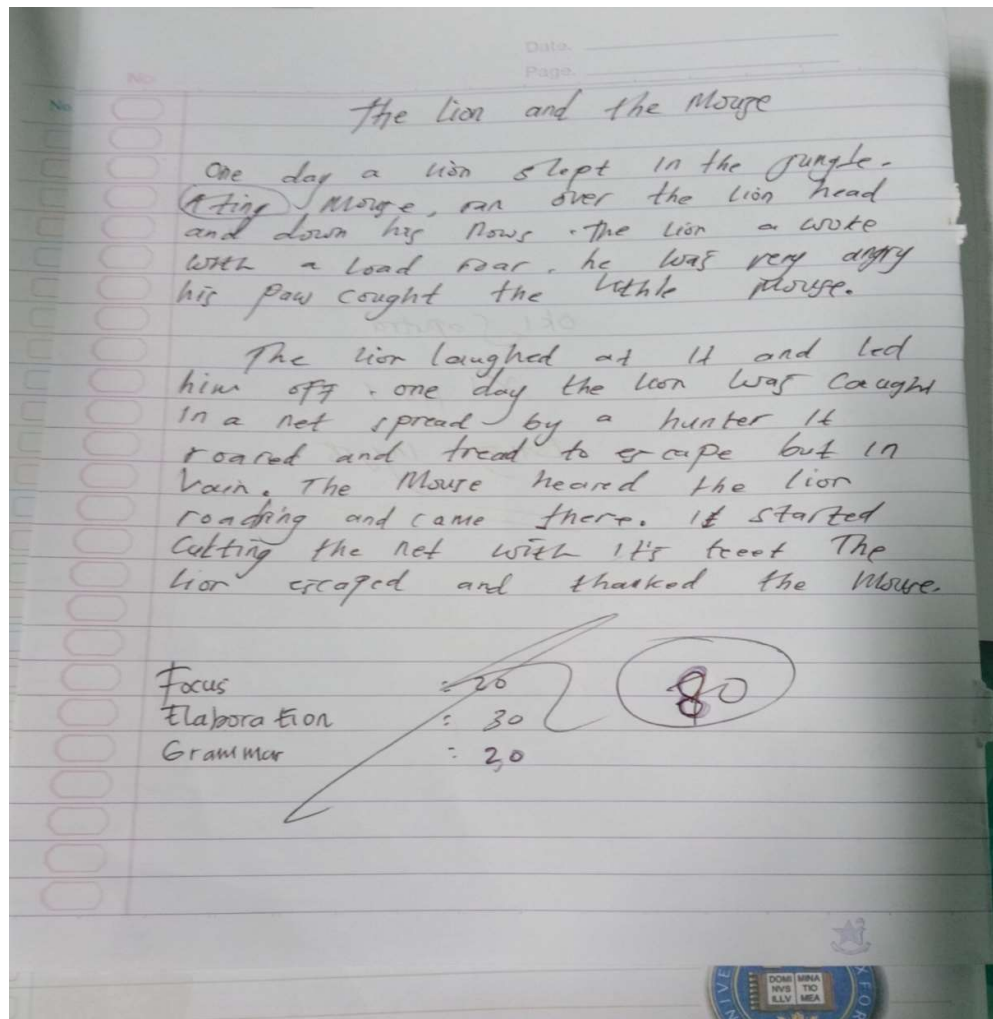 Date.
Page.
No
No
The Lion and the Mouse
One day a lion slept in the jungle.
A ting Mouse, ran over the lion head
and down his nows. The lion a woke
with a load roar. he was very angry
his paw cought the lithle Mouse.
The lion laughed at it and led
him off. one day the lion was Caught
In a net spread by a hunter It
roared and tread to es cape but in
Vain. The Mouse heared the lion
roading and came there. It started
Cutting the net with It's teeet The
lion escaped and thanked the Mouse.
Focus : 20
Elaboration : 30
Grammar : 20
80
UNIVE
XFOR
DOMI MINA
NVS TIO
ILLV MEA